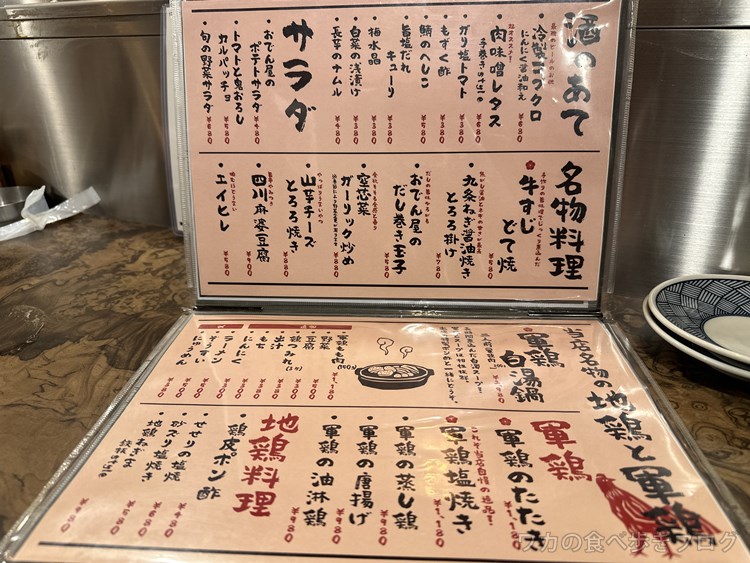 酒のあて
冷製
にんにく醤油和え
¥680
肉味噌レタス
手巻き
ガリ塩トマト
¥380
もずく酢
¥380
鯖のへしこ
¥580
旨塩だれ
キューリ
¥380
梅水晶
¥380
白菜の浅漬け
¥380
長芋のナムル
¥480
サラダ
おでん屋の
ポテトサラダ
¥480
トマトと鬼おろし
¥580
カルパッチョ
旬の野菜サラダ
¥680
名物料理
牛すじどて焼
¥580
九条ねぎ醤油焼き
とろろ掛け
¥780
おでん屋の
だし巻き玉子
¥580
空芯菜
ガーリック炒め
¥880
山芋チーズ
とろろ焼き
¥580
四川麻婆豆腐
¥980
エイヒレ
¥580
当店名物の地鶏と軍鶏
軍鶏白湯鍋
野菜
豆腐
鶏つみれ
出汁
もち
にんにく
ラーメン
軍鶏
軍鶏のたたき
¥1,180
これぞ当店自慢の逸品!
軍鶏塩焼き
¥1,180
軍鶏の蒸し鶏
¥980
軍鶏の唐揚げ
¥980
軍鶏の油淋鶏
¥980
地鶏料理
鶏皮ポン酢
¥480
せせりの塩焼き
砂ズリ塩焼き
地鶏ねぎま
ワカの食べ歩きブログ